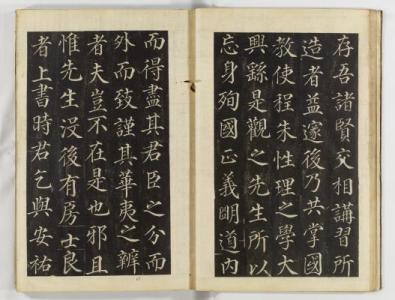 存吾諸賢交相講習所
造者益邃後乃共掌國
教使程朱性理之學大
興繇是觀之先生所以
忘身殉國正義明道内
而得盡其君臣之分而
外而致謹其華夷之辨
者夫豈不在是也邪且
惟先生没後有房士良
者上書時君乞與安祐